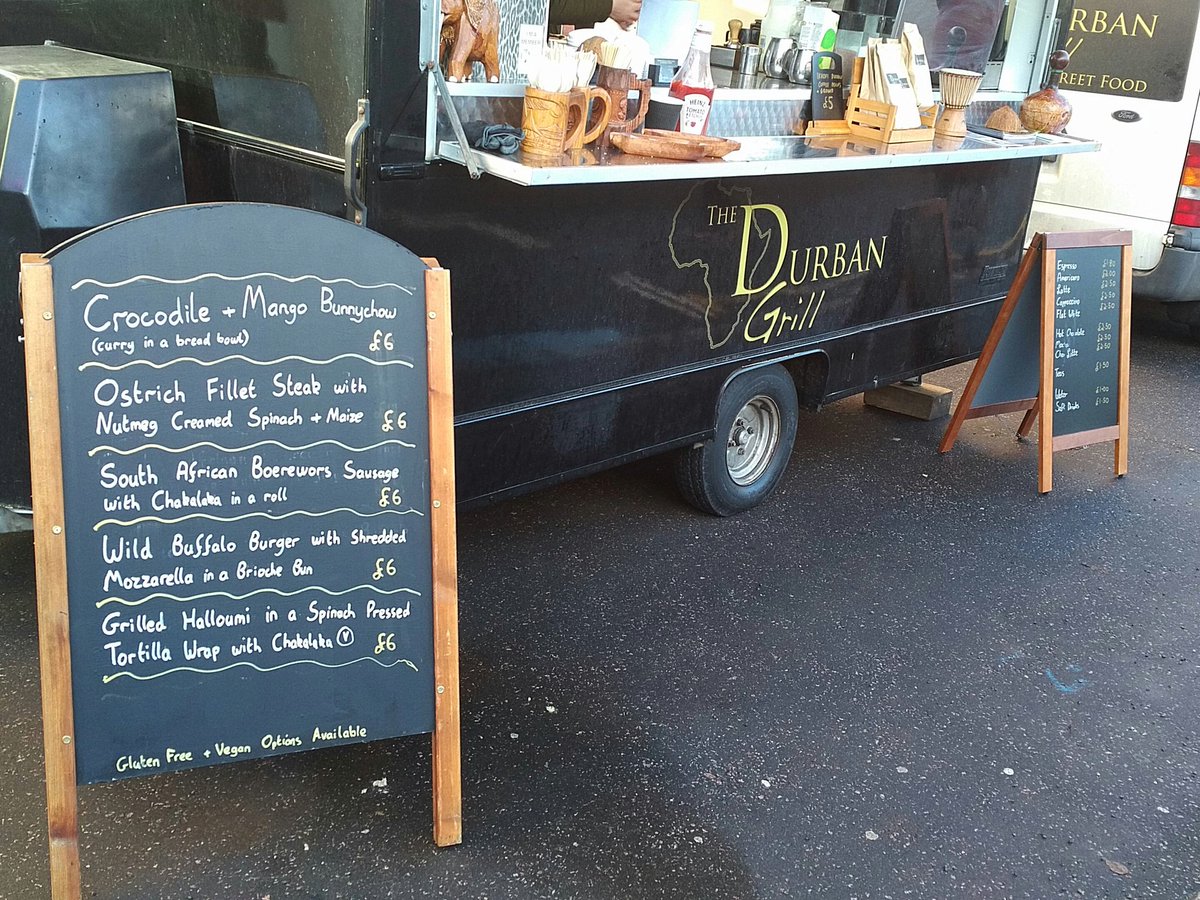 Crocodile + Mango Bunnychow
(curry in a bread bowl) £6
Ostrich Fillet Steak with
Nutmeg Creamed Spinach + Maize £6
South African Boerewors Sausage
with Chakalaka in a roll £6
Wild Buffalo Burger with Shredded
Mozzarella in a Brioche Bun £6
Grilled Halloumi in a Spinach Pressed
Tortilla Wrap with Chakalaka V £6
Gluten Free + Vegan Options Available
HEINZ
TOMATO
KETCHUP
£5
THE
DURBAN
Grill
RBAN
REET FOOD
Ford
Espresso
Americano £2.00
Latte £2.50
Cappuccino £2.50
Flat White £2.50
Hot Chocolate £2.50
Mocha £2.50
Chai Latte £2.50
Teas £1.50
Water £1.00
Soft Drinks £1.50